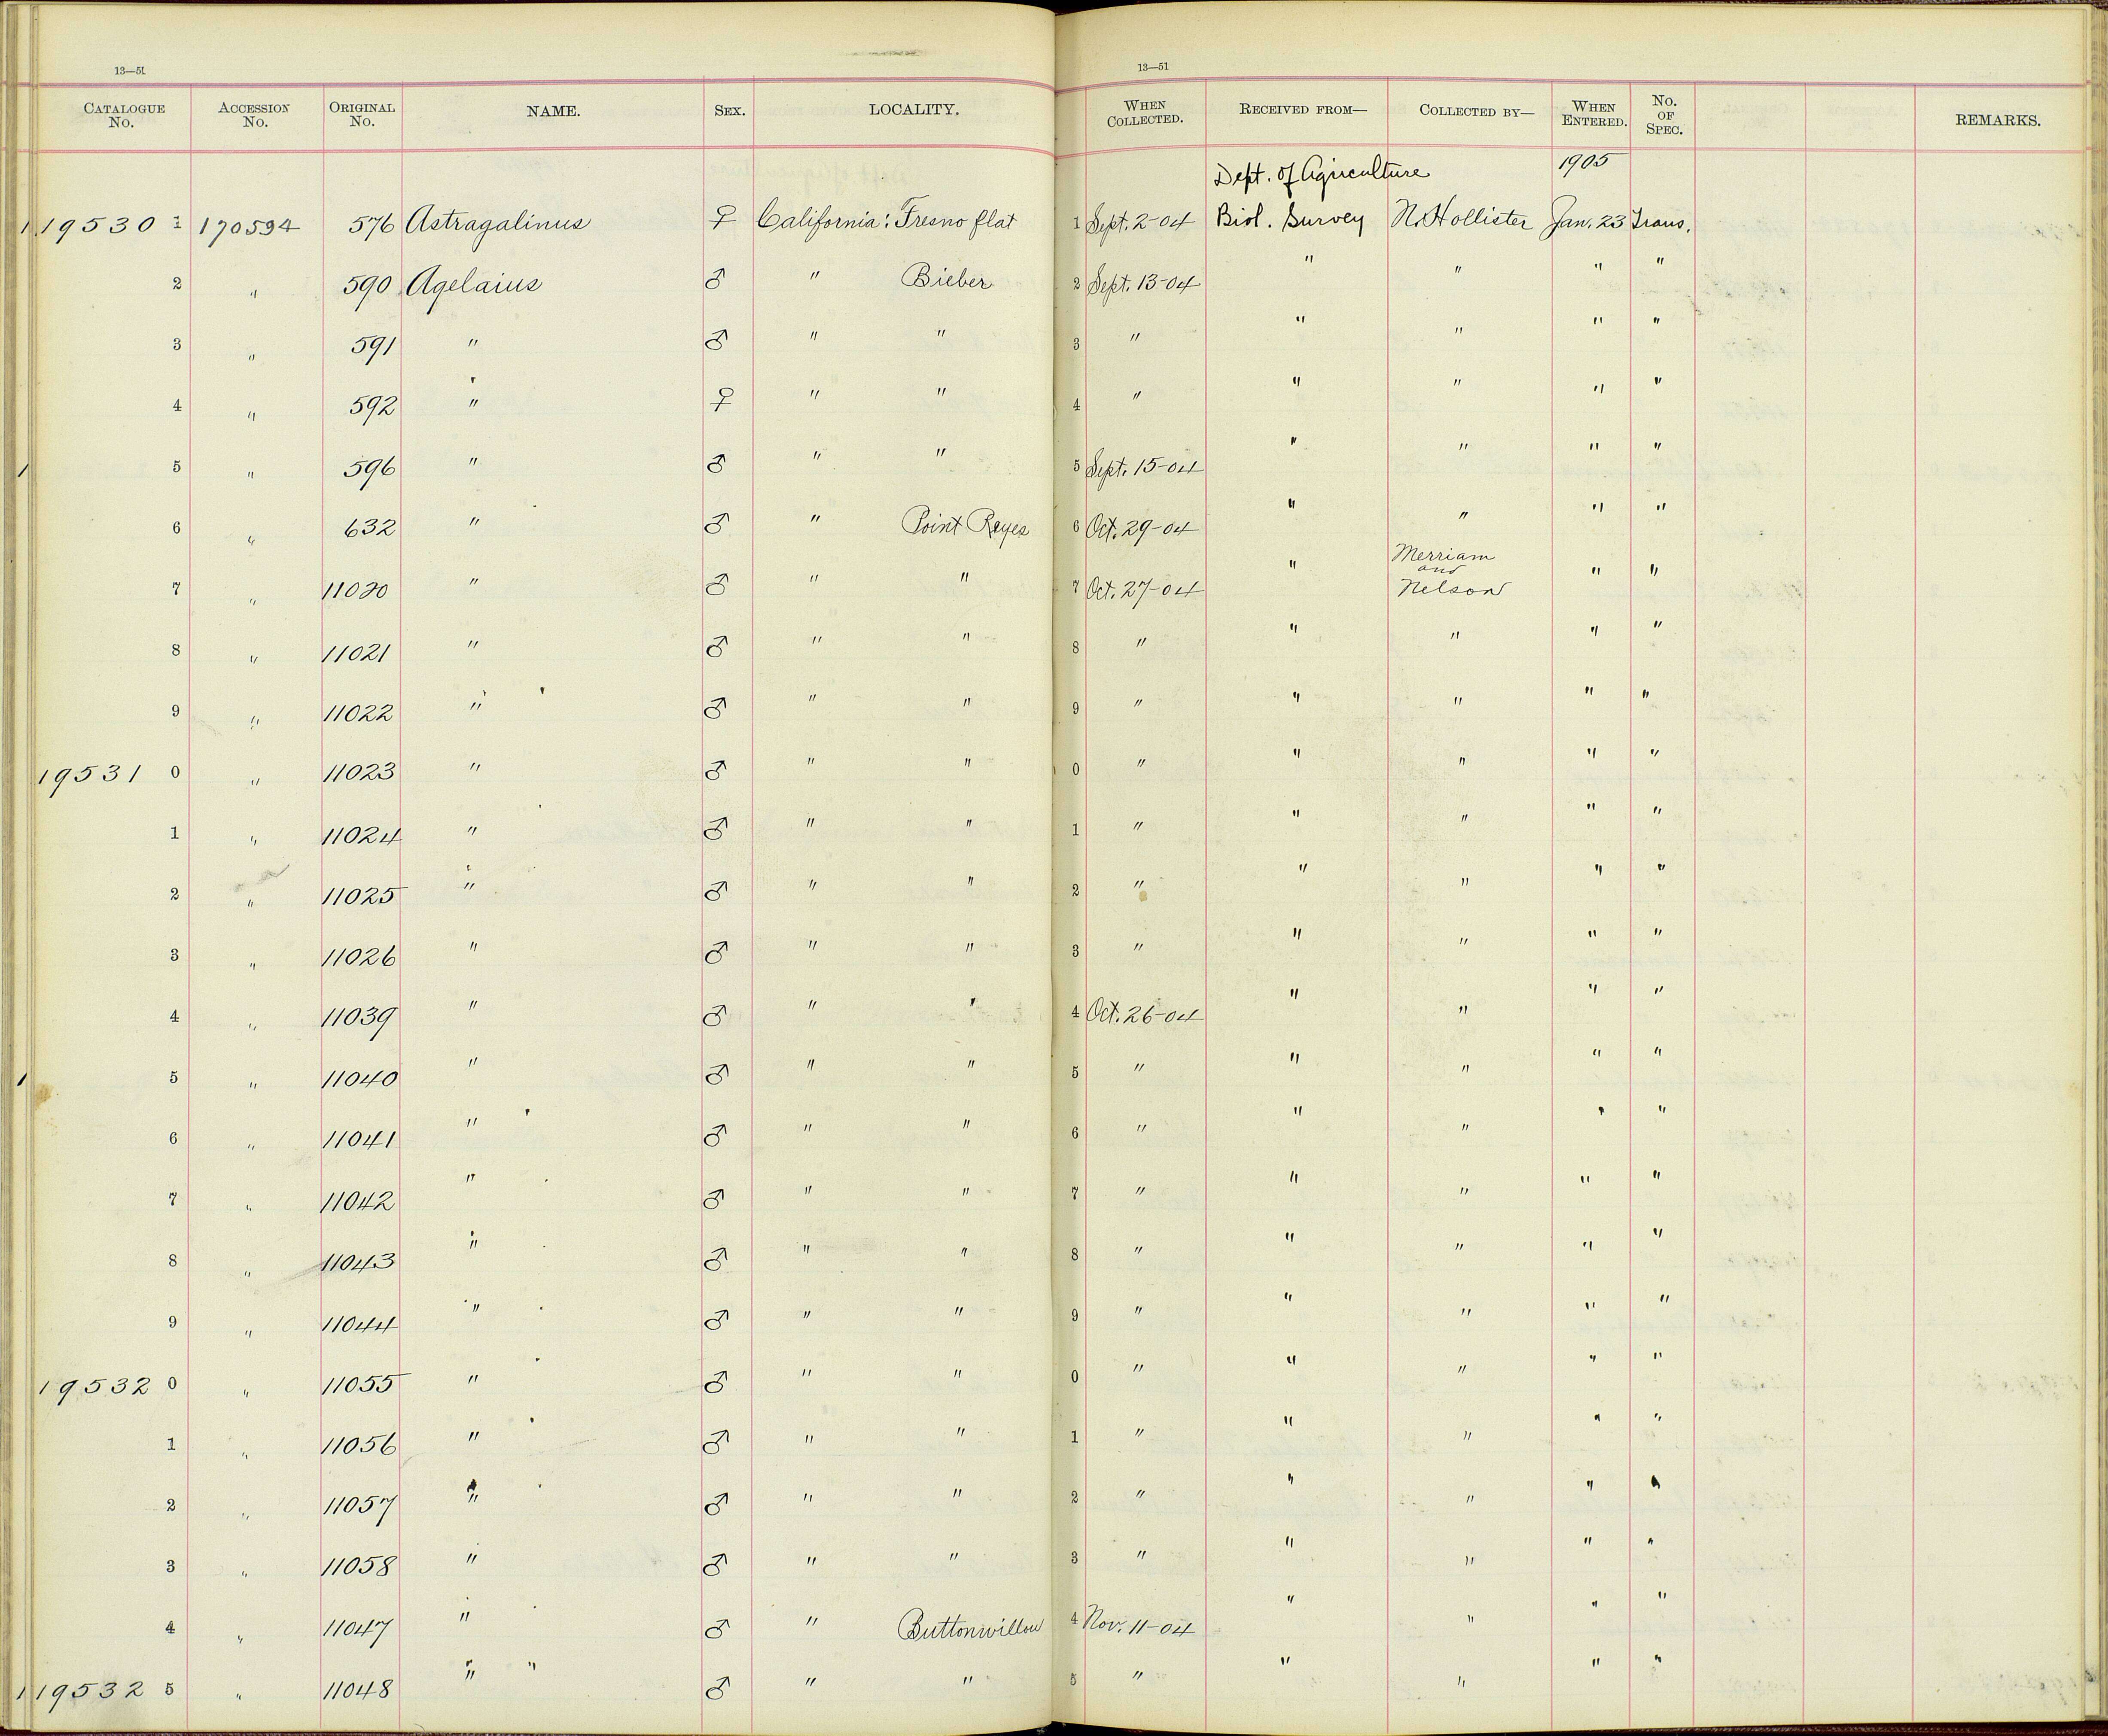 13—51
13—51
CATALOGUE No. ACCESSION No. ORIGINAL No. NAME. SEX. LOCALITY. WHEN COLLECTED. RECEIVED FROM— COLLECTED BY— WHEN ENTERED. No. OF SPEC. REMARKS.
Dept. of Agriculture 1905
19530 1 170594 576 Astragalinus ♀ California: Fresno flat 1 Sept. 2-04 Biol. Survey N. Hollister Jan. 23 Trans.
2 " 590 Agelaius ♂ " Bieber 2 Sept. 13-04 " " " "
3 " 591 " ♂ " " 3 " " " " "
4 " 592 " ♀ " " 4 " " " " "
5 " 596 " ♂ " " 5 Sept. 15-04 " " " "
6 " 632 " ♂ " Point Reyes 6 Oct. 29-04 " " " "
7 " 11020 " ♂ " " 7 Oct. 27-04 " Merriam and Nelson " "
8 " 11021 " ♂ " " 8 " " " " "
9 " 11022 " ♂ " " 9 " " " " "
19531 0 " 11023 " ♂ " " 0 " " " " "
1 " 11024 " ♂ " " 1 " " " " "
2 " 11025 " ♂ " " 2 " " " " "
3 " 11026 " ♂ " " 3 " " " " "
4 " 11039 " ♂ " " 4 Oct. 26-04 " " " "
5 " 11040 " ♂ " " 5 " " " " "
6 " 11041 " ♂ " " 6 " " " " "
7 " 11042 " ♂ " " 7 " " " " "
8 " 11043 " ♂ " " 8 " " " " "
9 " 11044 " ♂ " " 9 " " " " "
19532 0 " 11055 " ♂ " " 0 " " " " "
1 " 11056 " ♂ " " 1 " " " " "
2 " 11057 " ♂ " " 2 " " " " "
3 " 11058 " ♂ " " 3 " " " " "
4 " 11047 " ♂ " Buttonwillow 4 Nov. 11-04 " " " "
19532 5 " 11048 " " ♂ " " 5 " " " " "